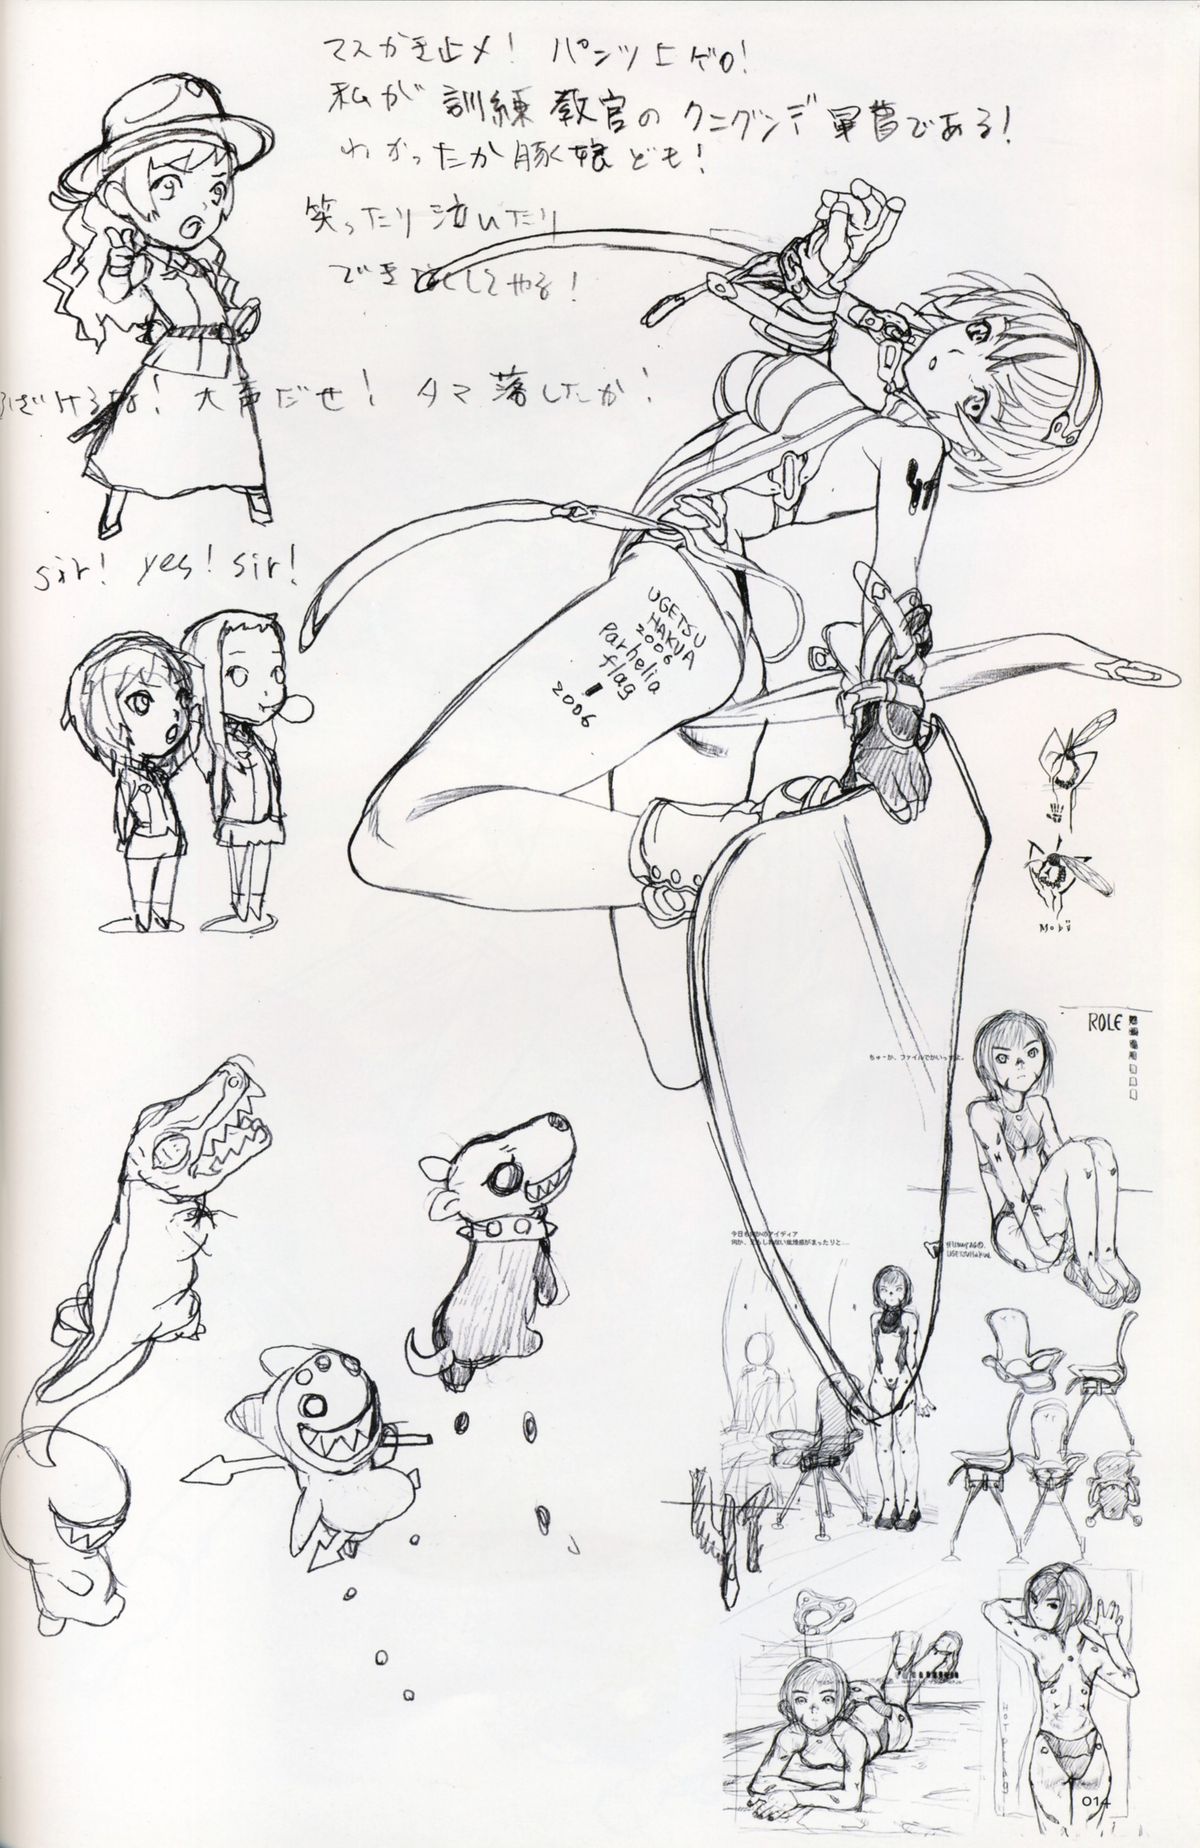 マスかき止メ! パンツ上ゲロ!
私が訓練教官のクニグンデ軍曹である!
わかったか豚娘ども!
笑ったり泣いたり
できなくしてやる!
ふざけるな! 大声だせ! タマ落したか!
sir! yes! sir!
UGETSU
HAKUA
2006
Parhelia
flag
!
2006
Mobi
ROLE
ちゅーか、ファイルでかいっすよ。
今日も
のアイディア
UGETSUHAKUA
HOT
014